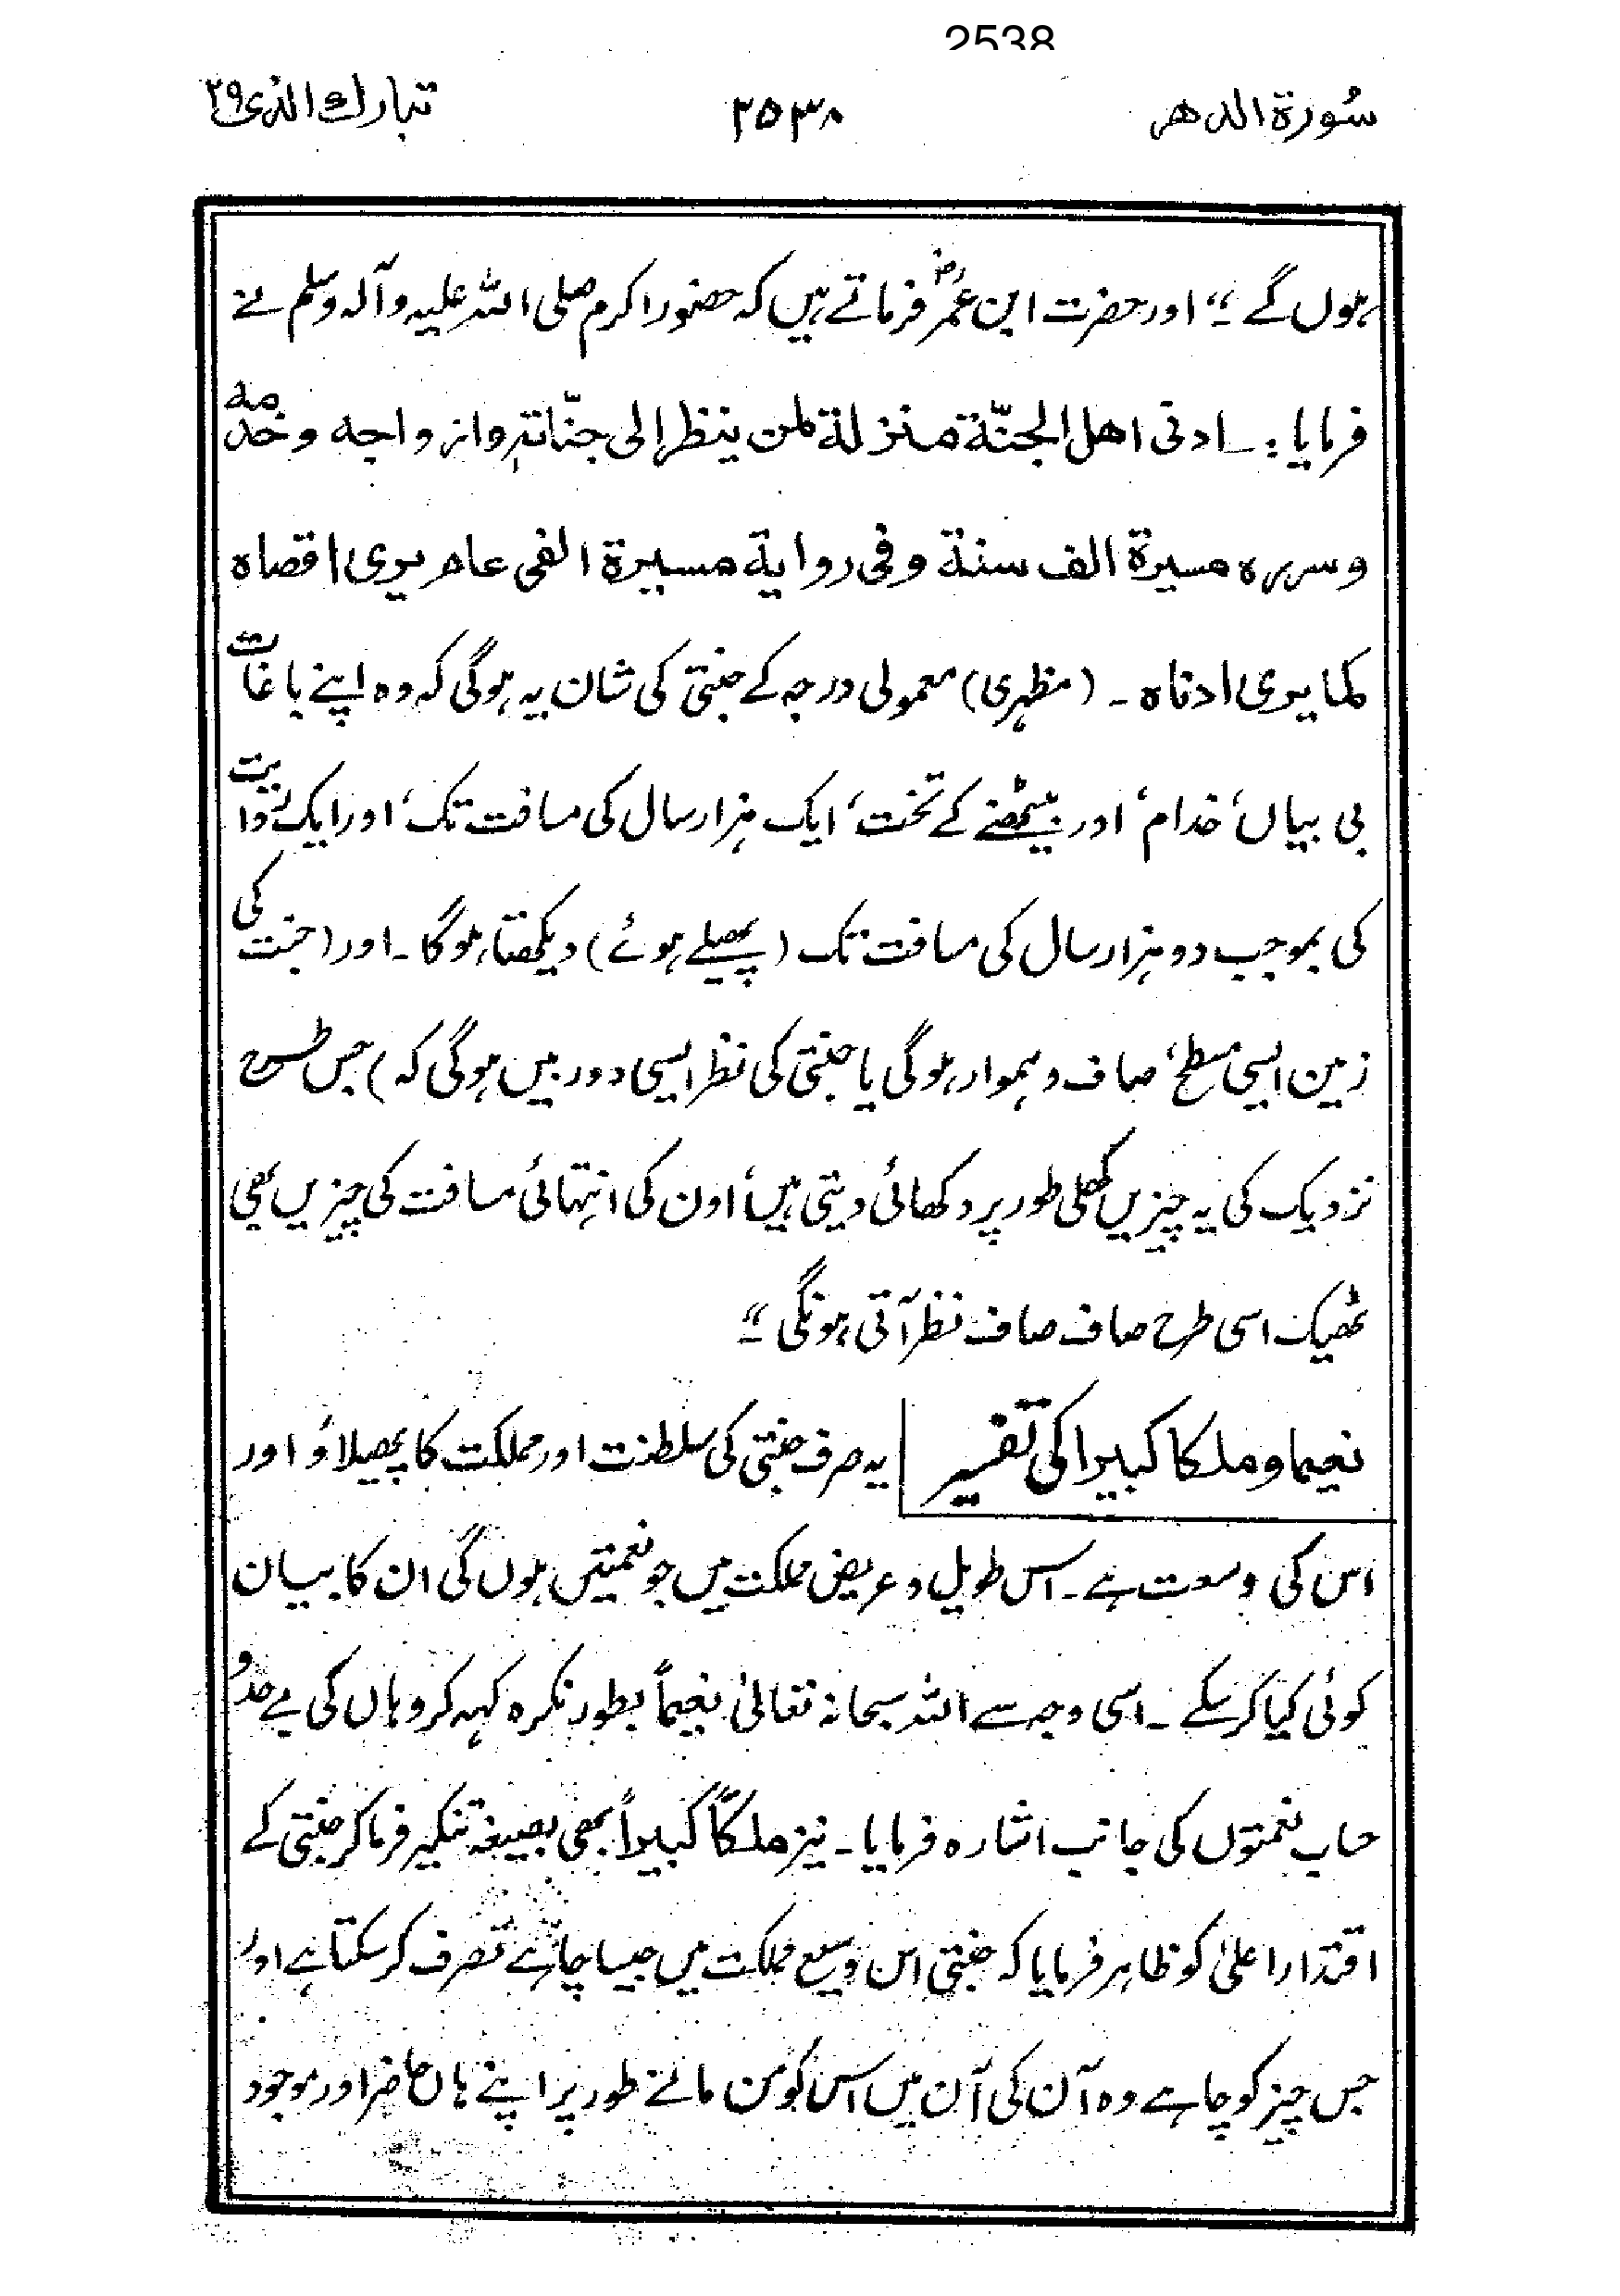 2538
سُورة الدهر ۲۵۳۸ تبارك الذى ۲۹
ہوں گے ۔“ اور حضرت ابن عمرؓ فرماتے ہیں کہ حضور اکرم صلی اللہ علیہ وآلہ وسلم نے
فرمایا :۔ ادنى اهل الجنّة منزلة لمن ينظر إلى جنّاته وازواجه وخدمه
وسرره مسيرة الف سنة وفى رواية مسيرة الفى عام يرى اقصاه
كما يرى ادناه ۔ (مظہری) معمولی درجہ کے جنتی کی شان یہ ہوگی کہ وہ اپنے باغات
بی بیاں، خدام، اور بیٹھنے کے تخت، ایک ہزار سال کی مسافت تک، اور ایک روایت
کی بموجب دو ہزار سال کی مسافت تک (پھیلے ہوئے) دیکھتا ہوگا۔ اور (جنت کی
زمین ایسی مسطح، صاف و ہموار ہوگی یا جنتی کی نظر ایسی دور بیں ہوگی کہ) جس طرح
نزدیک کی یہ چیزیں کھلی طور پر دکھائی دیتی ہیں، اون کی انتہائی مسافت کی چیزیں بھی
ٹھیک اسی طرح صاف صاف نظر آتی ہونگی ۔“
نعیما وملکا کبیرا کی تفسیر یہ صرف جنتی کی سلطنت اور مملکت کا پھیلاؤ اور
اس کی وسعت ہے۔ اس طویل و عریض مملکت میں جو نعمتیں ہوں گی ان کا بیان
کوئی کیا کرسکے ۔ اسی وجہ سے اللہ سبحانہ تعالیٰ نعیماً بطور نکرہ کہہ کر وہاں کی بے حد و
حساب نعمتوں کی جانب اشارہ فرمایا۔ نیز ملکاً کبیراً بھی بصیغہ تنکیر فرما کر جنتی کے
اقتدار اعلیٰ کو ظاہر فرمایا کہ جنتی اس وسیع مملکت میں جیسا چاہے تصرف کرسکتا ہے اور
جس چیز کو چاہے وہ آن کی آن میں اس کو من مانے طور پر اپنے ہاں حاضر اور موجود